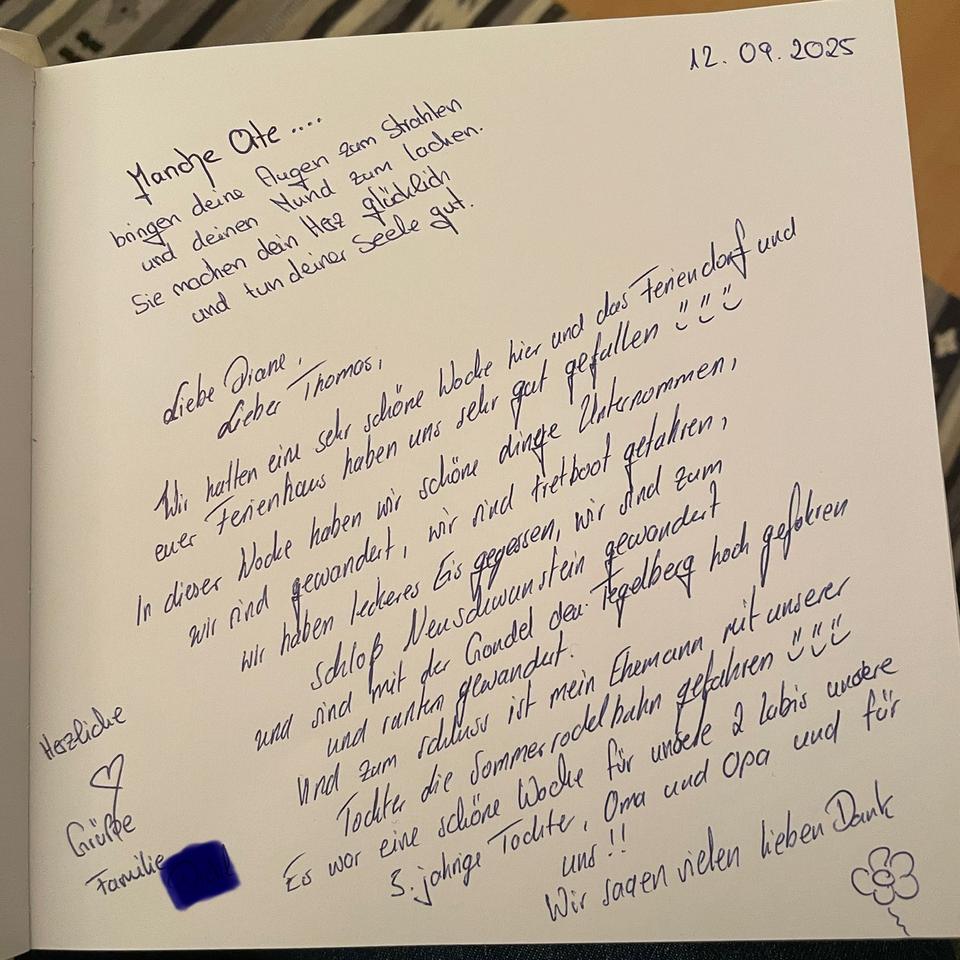 12. 09. 2025
Manche Orte ....
bringen deine Augen zum Strahlen
und deinen Mund zum lachen.
Sie machen dein Herz glücklich
und tun deiner Seele gut.
Liebe Diane,
Lieber Thomas,
Wir hatten eine sehr schöne Woche hier und das Feriendorf und
euer Ferienhaus haben uns sehr gut gefallen
In dieser Woche haben wir schöne dinge Unternommen,
wir sind gewandert, wir sind tretboot gefahren,
wir haben leckeres Eis gegessen, wir sind zum
schloß Neuschwanstein gewandert
und sind mit der Gondel den Tegelberg hoch gefahren
und runten gewandert.
Und zum schluss ist mein Ehemann mit unserer
Tochter die Sommerrodelbahn gefahren
Es war eine schöne Woche für unsere 2 labis unsere
3. jahrige Tochter, Oma und Opa und für
uns!!
Wir sagen vielen lieben Dank
Herzliche
Grüße
Familie